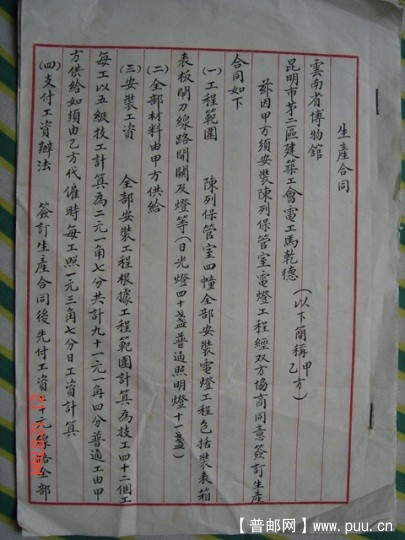 生產合同
雲南省博物館
昆明市第二區建築工會電工馬乾德
(以下簡稱甲方
乙方)
茲因甲方須安裝陳列保管室電燈工程經双方協商同意簽訂生產
合同如下
(一)工程範圍 陳列保管室四幢全部安裝電燈工程包括裝表箱
表板開刀線路開關及燈等(日光燈四十盞普通照明燈十一盞)
(二)全部材料由甲方供給
(三)安裝工資 全部安裝工程根據工程範圍計算為技工四十二個工
每工以五級技工計算為二元一角七分共計九十一元一角四分普通工由甲
方供給如須由乙方代僱時每工照一元三角七分日工資計算
(四)支付工資辦法 簽訂生產合同後先付工資二十元線路全部
【普邮网】www.puu.cn